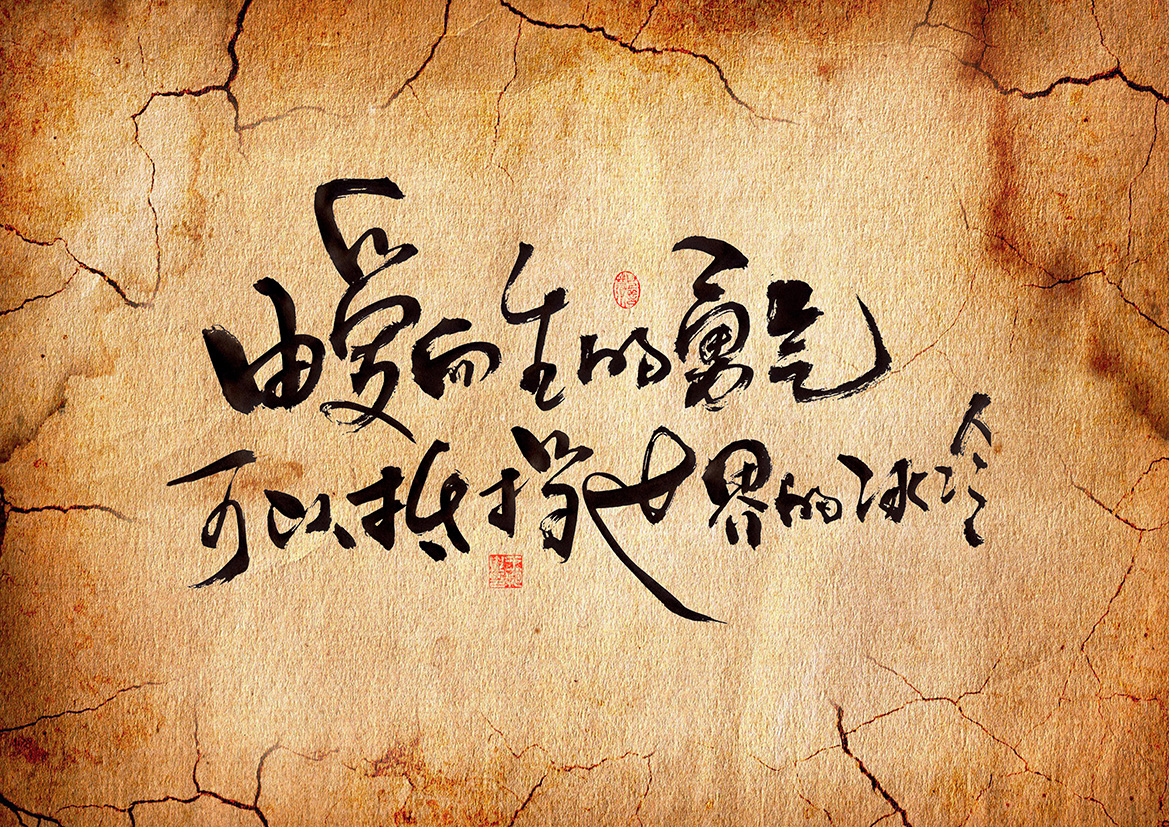 由爱而生的勇气
可以抵挡世界的冰冷